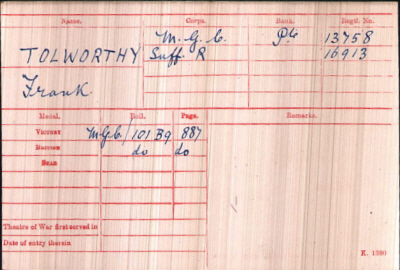 Name. Corps. Rank. Regtl. No.
M. G. C. Pte 13758
TOLWORTHY Suff. R 16913
Frank.
Medal. Roll. Page. Remarks.
Victory M.G.C/101 B9 887
British do do
Star
Theatre of War first served in
Date of entry therein
K. 1380